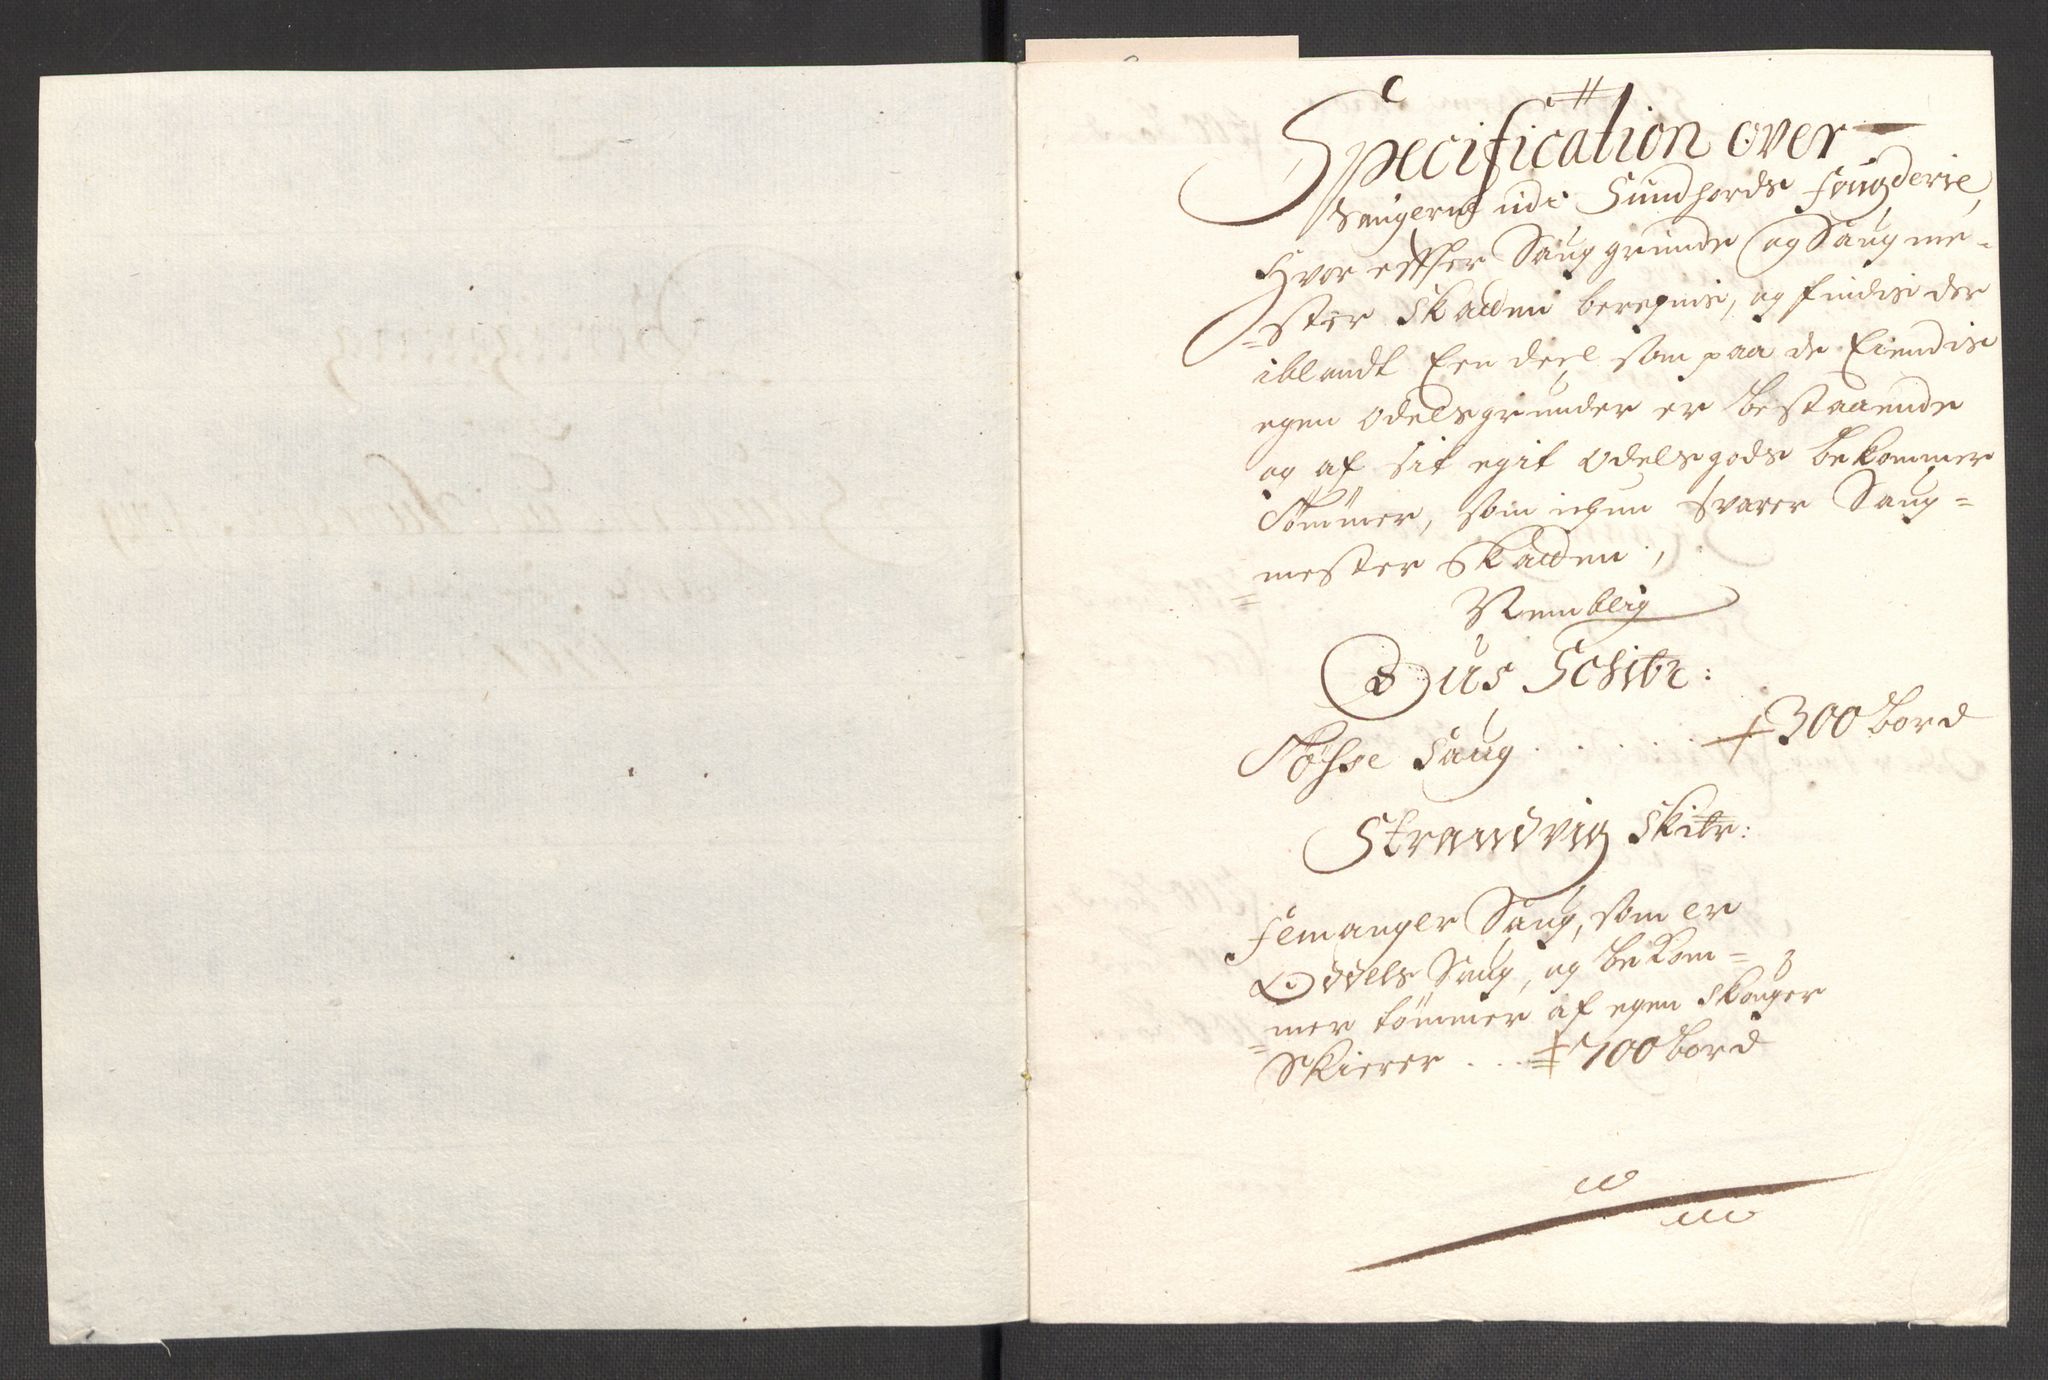 Specification over
Saugerne udi Sundhords fougderie,
Hvor effter Sauggrunde og Saugme-
=ster Skatten beregnis, og findis der
iblandt Een deel som paa de Eiendis
egen Odelsgrunder er bestaaende
og af sit egit Odelsgods bekommer
Tømmer, som ichun svarer Saug=
mester Skatten,
Nemblig
Ous Schibr:
Tøsse Saug . . . . . 300 bord
Strandvig Skibr:
Femanger Saug, som er
Oddels Saug, og bekom=
=mer tømmer af egen Skouger
Skierer . . . 700 bord